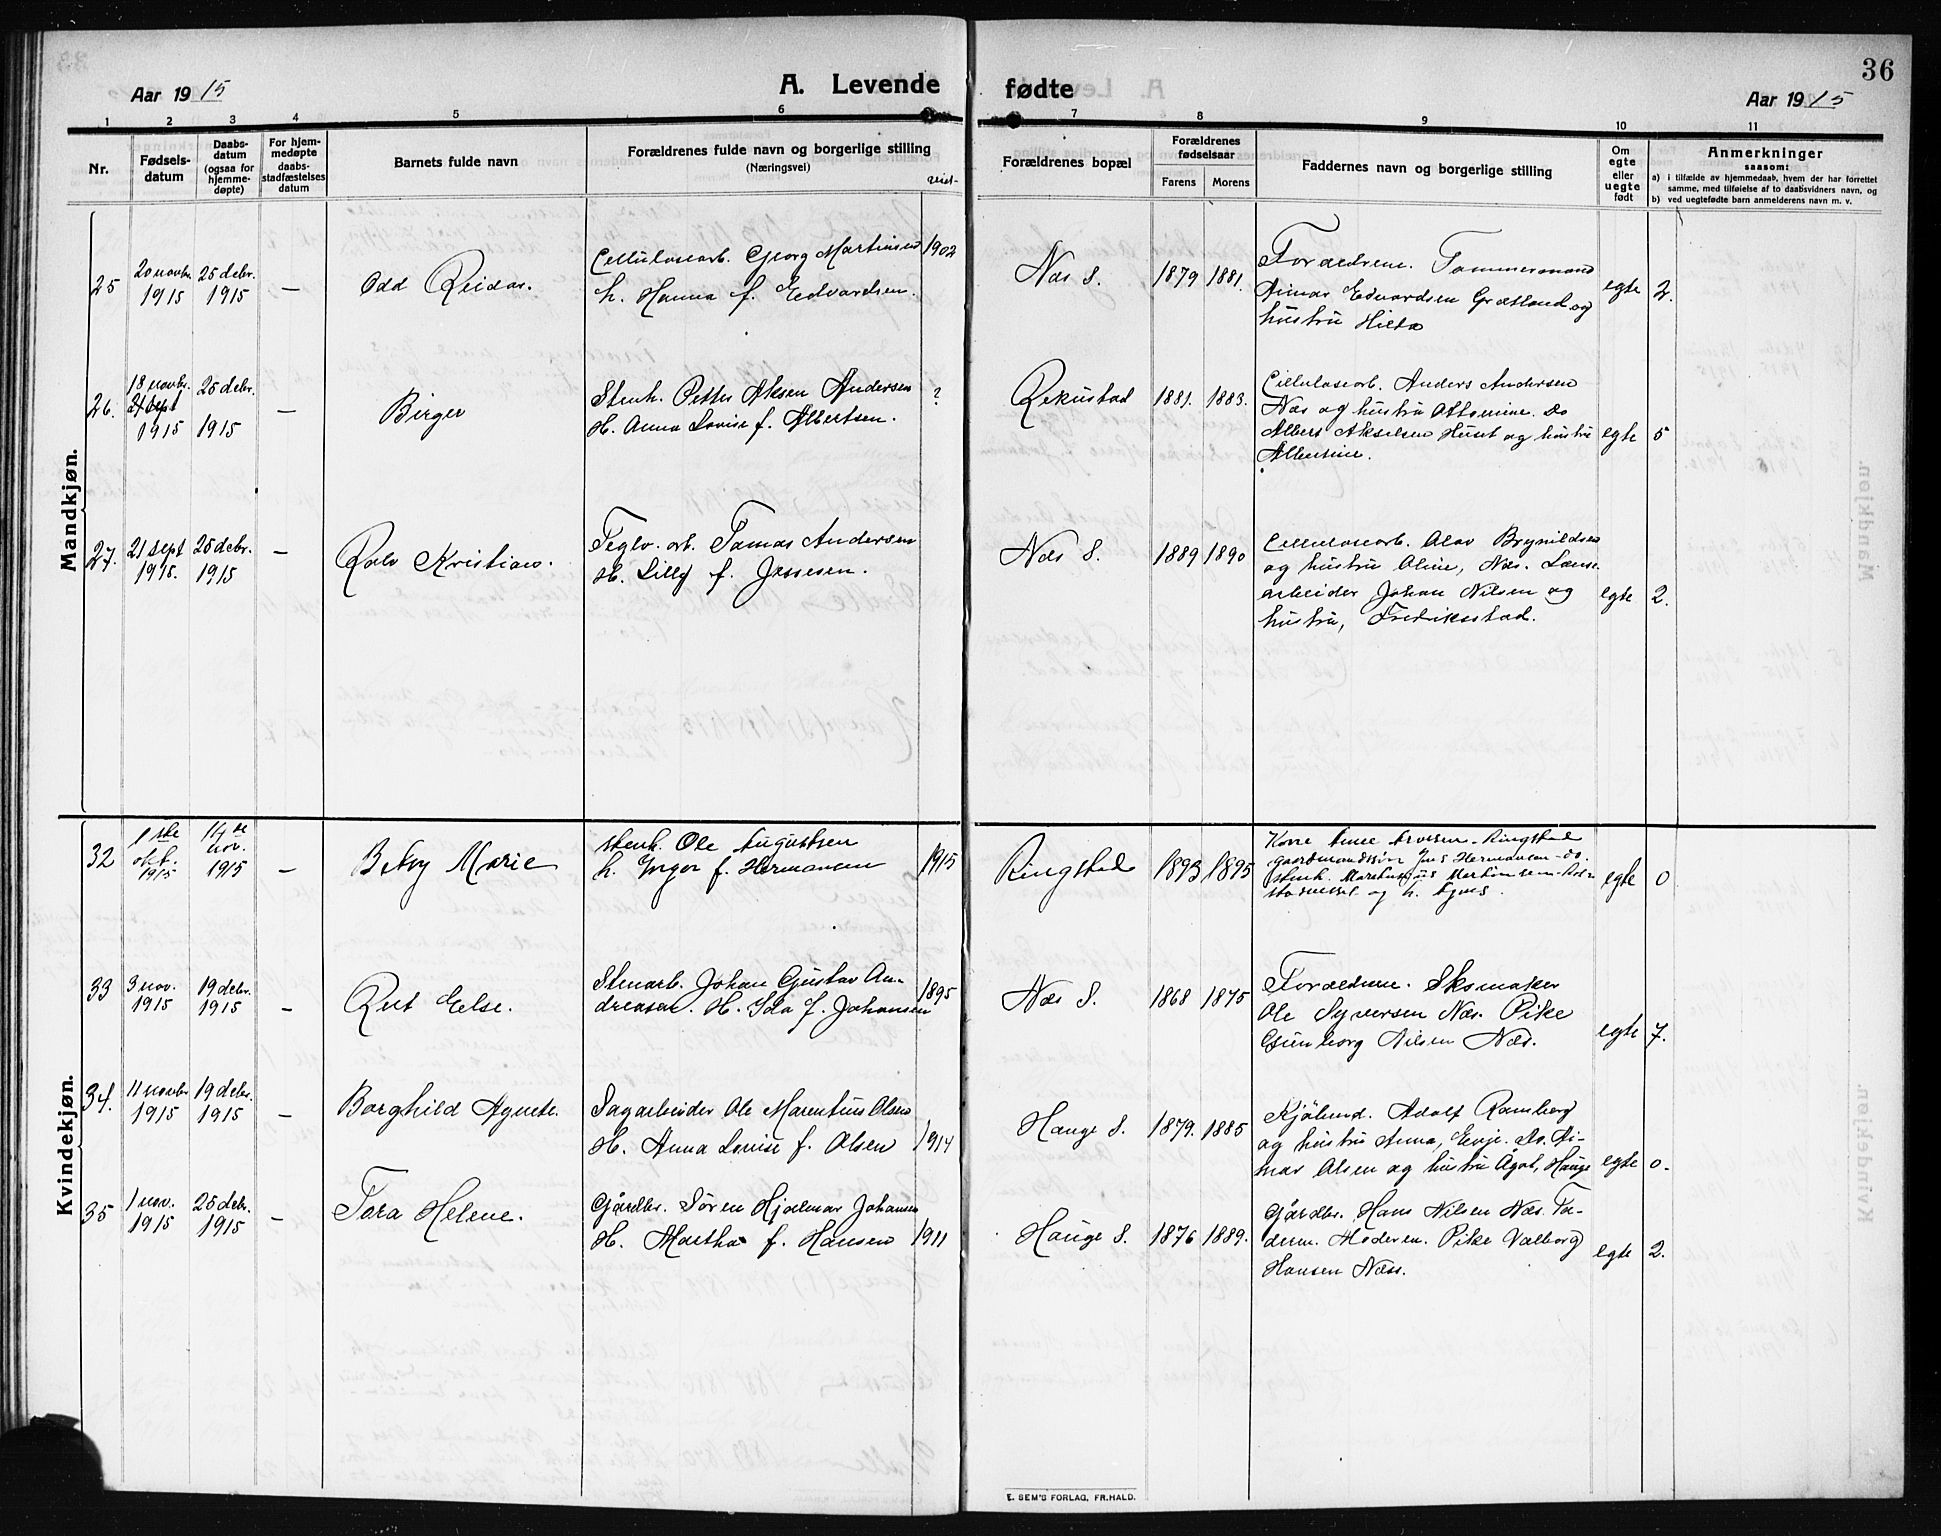 36
Aar 1915
A. Levende
fødte
Aar 1915
1 2 3 4 5 6 7 8 9 10 11
Nr.
Fødsels-
datum
Daabs-
datum
(ogsaa for
hjemme-
døpte)
For hjem-
medøpte
daabs-
stadfæstelses
datum
Barnets fulde navn
Forældrenes fulde navn og borgerlige stilling
(Næringsvei)
viet-
Forældrenes bopæl
Forældrenes
fødselsaar
Farens Morens
Faddernes navn og borgerlige stilling
Om
egte
eller
uegte
født
Anmerkninger
saasom:
a) i tilfælde av hjemmedaab, hvem der har forrettet
samme, med tilføielse af to daabsvidners navn, og
b) ved uegtefødte barn anmelderens navn m. v.
Mandkjøn.
25
20 novbr.
1915
25 debr.
1915
—
Odd Reidar.
Cellulosearb. Georg Martinsen
h. Hanna f. Edvardsen.
1902
Næs S.
1879 1881.
Forældrene. Tømmermand
Aimar Edvardsen Grætland og
hustru Hilda
egte 2.
26.
18 novbr.
21 sept
1915
25 debr.
1915
—
Birger
Stenh. Petter Aksen Andersen
H. Anna Lovise f. Albertsen.
?
Rekustad
1881. 1883.
Cellulosearb. Anders Andersen
Næs og hustru Attomine. Do
Albert Akselsen Huset og hustru
Albertine.
egte 5
27.
21 sept
1915.
25 debr.
1915
—
Rolv Kristian.
Teglv. arb. Tomas Andersen
H. Lilly f. Jossesen.
Næs S.
1889 1890
Cellulosearb. Olav Brynildsen
og hustru Oline, Næs. Lænse
arbeider Johan Nilsen og
hustru, Fredriksstad.
egte 2.
Kvindekjøn.
32
1ste
okt.
1915
14de
nov.
1915
—
Betsy Marie
stenh. Ole Augustsen
h. Inga f. Hermansen
1915
Ringstad
1893 1895
Kone Anne Ringstad
gaardmandssøn Jens Hermansen - do.
stenh. Martinsen
og h. Agnes.
egte 0
33
3 nov.
1915
19 debr.
1915
—
Rut Else.
Stenarb. Johan Gustav An-
dreasen. H. Ida f. Johansen
1895
Næs S.
1868 1875
Forældrene. Skomaker
Ole Syversen Næs. Pike
Gunborg Nilsen Næs.
egte 7.
34.
11 novbr
1915
19 debr.
1915
—
Borghild Agnete.
Sagarbeider Ole Marentius Olsen
H. Anna Lovise f. Olsen
1914
Hauge S.
1879. 1885
Kjøbmd. Adolf Ramberg
og hustru Anna, Evje. Do. Ai-
mar Olsen og hustru Ågot, Hauge
egte 0.
35
1 nov.
1915
25 debr.
1915
—
Tora Helene.
Gårdbr. Søren Hjalmar Johansen
H. Martha f. Hansen
1911
Hauge S.
1876 1889.
Gårdbr. Hans Nilsen Næs. Fa-
deren. Moderen. Pike Valborg
Hansen Næss.
egte 2.
E. SEM'S FORLAG, FR.HALD.